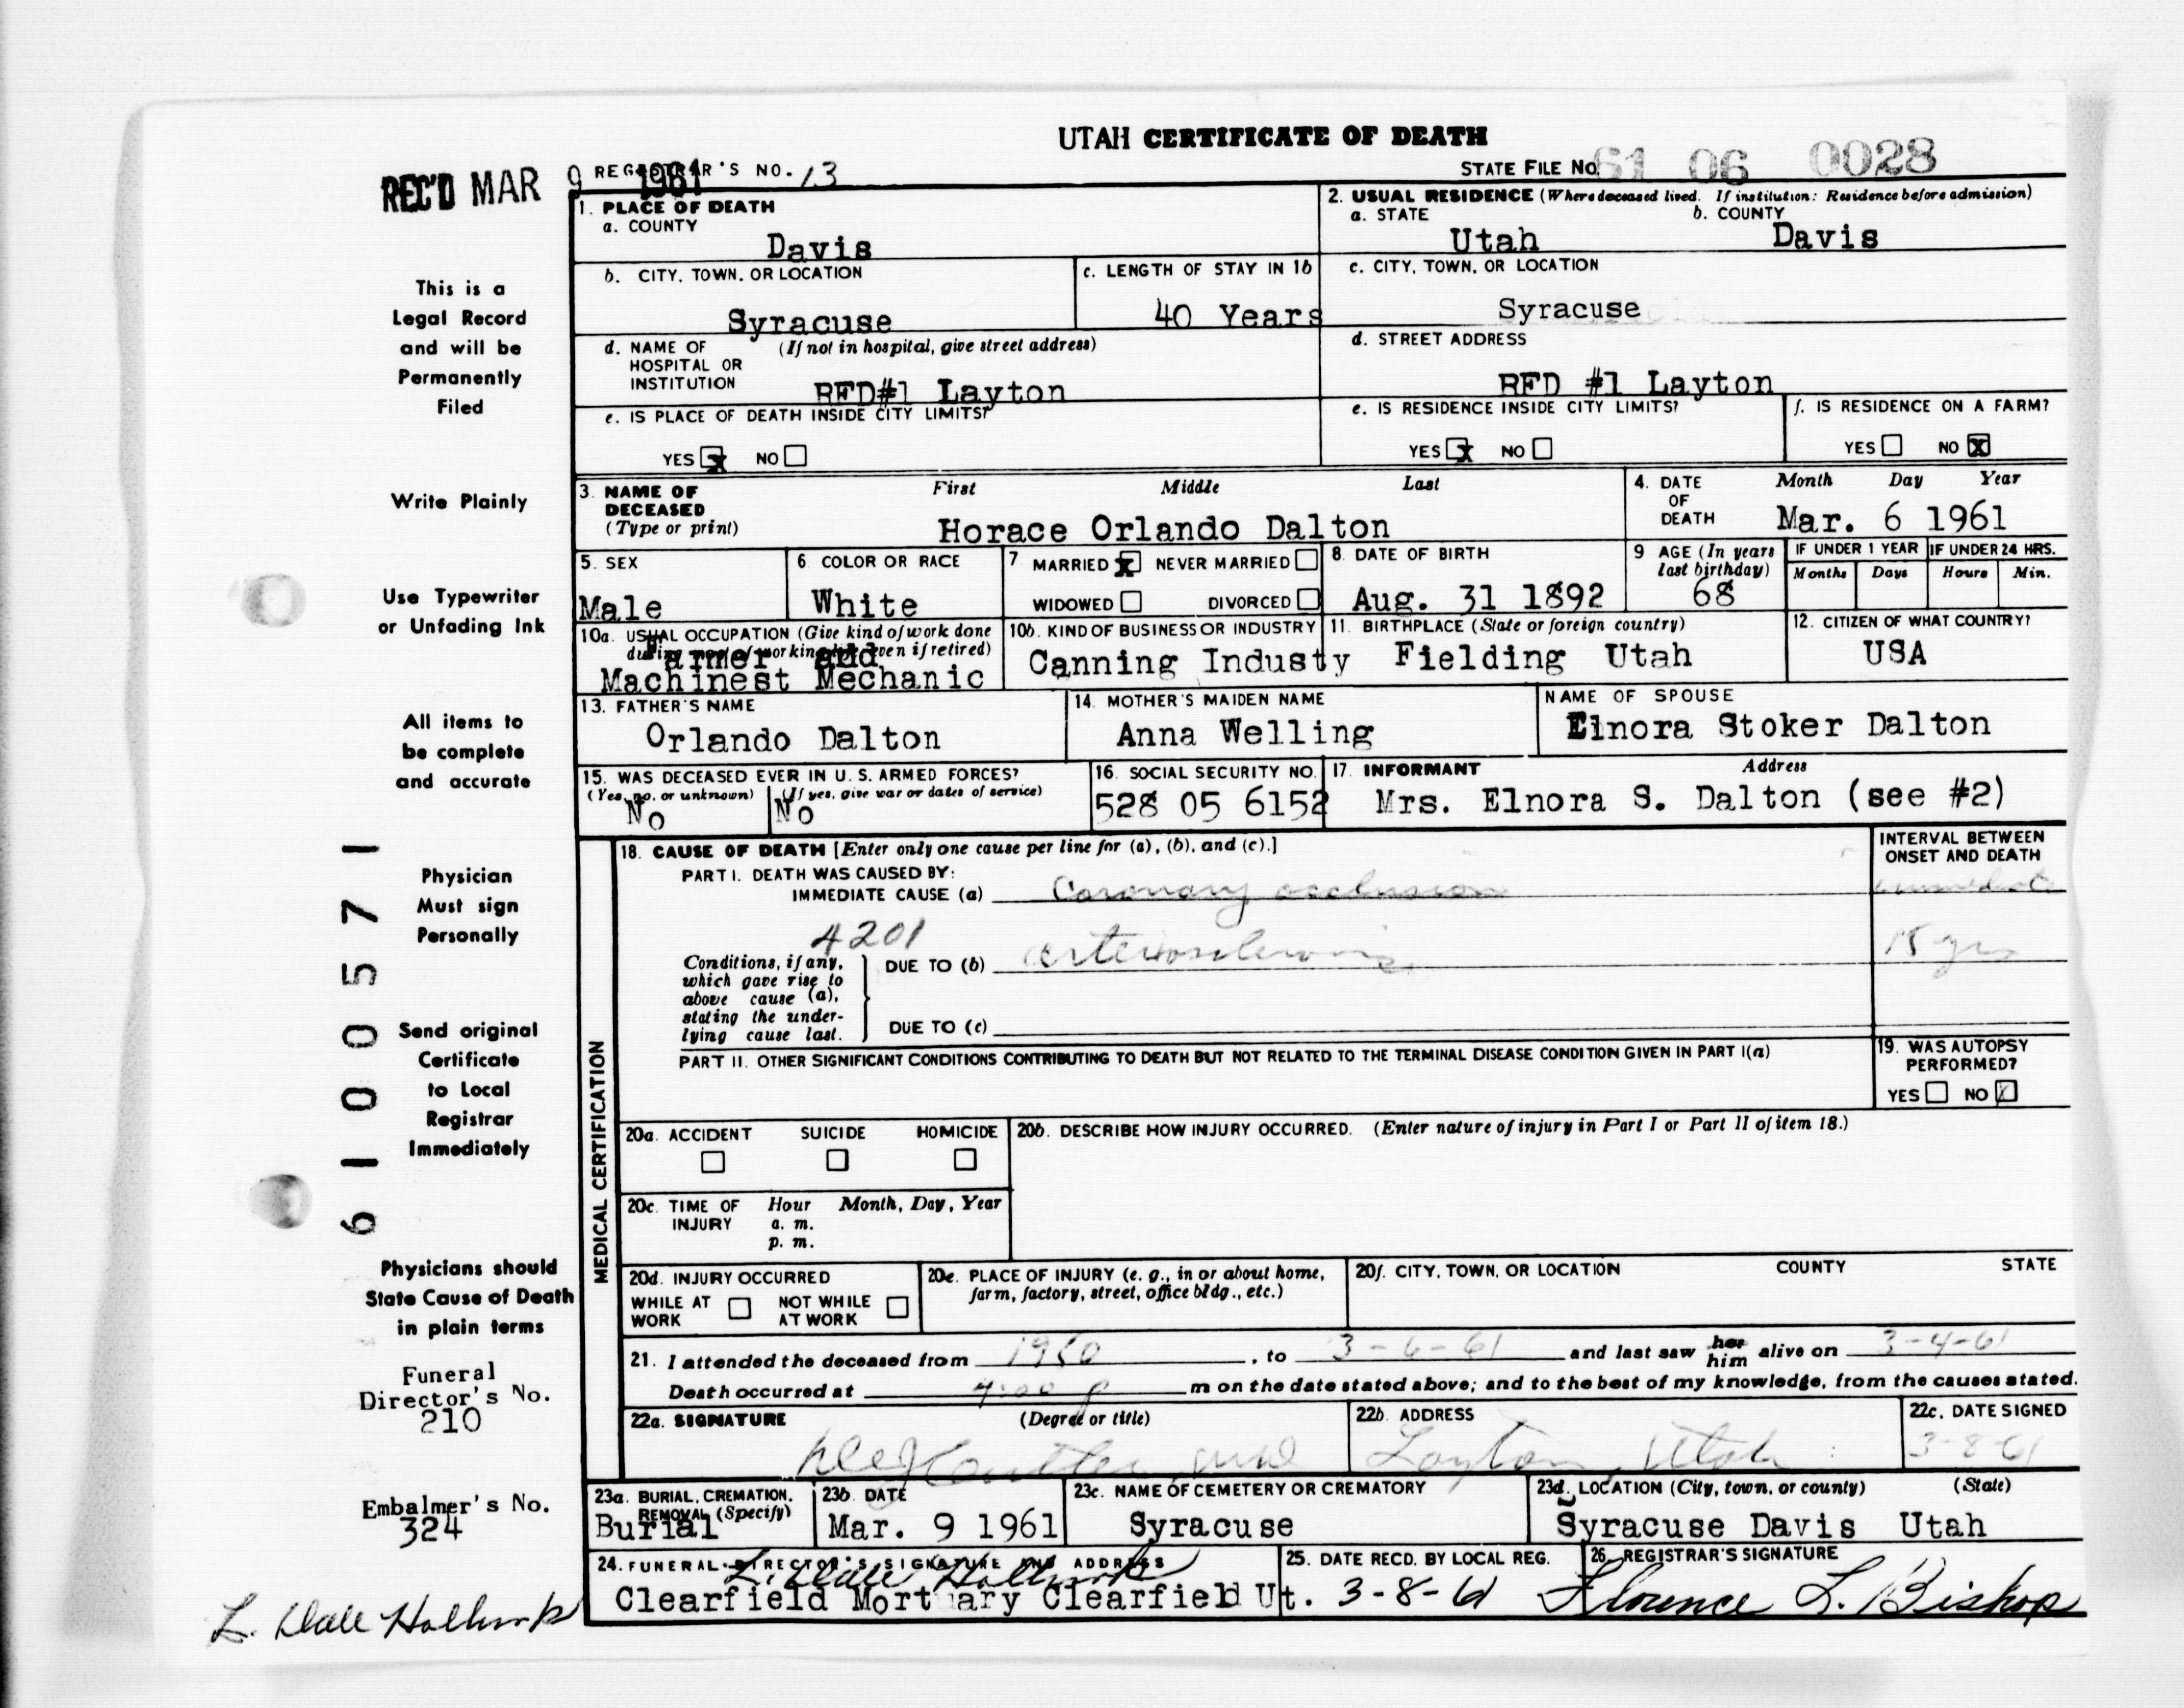 UTAH CERTIFICATE OF DEATH
REC'D MAR 9 1961
REGISTRAR'S NO. 13
STATE FILE NO. 61 06 0028
1. PLACE OF DEATH
a. COUNTY
Davis
2. USUAL RESIDENCE (Where deceased lived. If institution: Residence before admission)
a. STATE b. COUNTY
Utah Davis
b. CITY, TOWN, OR LOCATION
Syracuse
c. LENGTH OF STAY IN 1b
40 Years
c. CITY, TOWN, OR LOCATION
Syracuse
d. NAME OF HOSPITAL OR INSTITUTION (If not in hospital, give street address)
RFD#1 Layton
d. STREET ADDRESS
RFD #1 Layton
e. IS PLACE OF DEATH INSIDE CITY LIMITS?
YES X NO
e. IS RESIDENCE INSIDE CITY LIMITS?
YES X NO
f. IS RESIDENCE ON A FARM?
YES NO X
3. NAME OF DECEASED (Type or print)
First Middle Last
Horace Orlando Dalton
4. DATE OF DEATH
Month Day Year
Mar. 6 1961
5. SEX
Male
6 COLOR OR RACE
White
7 MARRIED X NEVER MARRIED
WIDOWED DIVORCED
8. DATE OF BIRTH
Aug. 31 1892
9 AGE (In years last birthday)
68
IF UNDER 1 YEAR
Months Days
IF UNDER 24 HRS.
Hours Min.
10a. USUAL OCCUPATION (Give kind of work done during most of working life, even if retired)
Farmer and
Machinest Mechanic
10b. KIND OF BUSINESS OR INDUSTRY
Canning Industy
11. BIRTHPLACE (State or foreign country)
Fielding Utah
12. CITIZEN OF WHAT COUNTRY?
USA
13. FATHER'S NAME
Orlando Dalton
14. MOTHER'S MAIDEN NAME
Anna Welling
NAME OF SPOUSE
Elnora Stoker Dalton
15. WAS DECEASED EVER IN U.S. ARMED FORCES?
(Yes, no, or unknown) (If yes, give war or dates of service)
No No
16. SOCIAL SECURITY NO.
528 05 6152
17. INFORMANT Address
Mrs. Elnora S. Dalton (see #2)
MEDICAL CERTIFICATION
18. CAUSE OF DEATH [Enter only one cause per line for (a), (b), and (c).]
INTERVAL BETWEEN ONSET AND DEATH
PART I. DEATH WAS CAUSED BY:
IMMEDIATE CAUSE (a) Coronary occlusion immediate
4201
Conditions, if any, which gave rise to above cause (a), stating the underlying cause last.
DUE TO (b) arteriosclerosis 15 yrs
DUE TO (c)
PART II. OTHER SIGNIFICANT CONDITIONS CONTRIBUTING TO DEATH BUT NOT RELATED TO THE TERMINAL DISEASE CONDITION GIVEN IN PART I(a)
19. WAS AUTOPSY PERFORMED?
YES NO X
20a. ACCIDENT SUICIDE HOMICIDE
20b. DESCRIBE HOW INJURY OCCURRED. (Enter nature of injury in Part I or Part II of item 18.)
20c. TIME OF INJURY Hour Month, Day, Year
a. m.
p. m.
20d. INJURY OCCURRED
WHILE AT WORK NOT WHILE AT WORK
20e. PLACE OF INJURY (e. g., in or about home, farm, factory, street, office bldg., etc.)
20f. CITY, TOWN, OR LOCATION COUNTY STATE
21. I attended the deceased from 1950, to 3-6-61 and last saw her him alive on 3-4-61
Death occurred at 4:00 p m on the date stated above; and to the best of my knowledge, from the causes stated.
22a. SIGNATURE (Degree or title)
22b. ADDRESS
Layton, Utah
22c. DATE SIGNED
3-8-61
23a. BURIAL, CREMATION, REMOVAL (Specify)
Burial
23b. DATE
Mar. 9 1961
23c. NAME OF CEMETERY OR CREMATORY
Syracuse
23d. LOCATION (City, town, or county) (State)
Syracuse Davis Utah
24. FUNERAL DIRECTOR'S SIGNATURE AND ADDRESS
Clearfield Mortuary Clearfield Ut.
25. DATE RECD. BY LOCAL REG.
3-8-61
26. REGISTRAR'S SIGNATURE
Florence L. Bishop
This is a
Legal Record
and will be
Permanently
Filed
Write Plainly
Use Typewriter
or Unfading Ink
All items to
be complete
and accurate
Physician
Must sign
Personally
Send original
Certificate
to Local
Registrar
Immediately
Physicians should
State Cause of Death
in plain terms
Funeral
Director's No.
210
Embalmer's No.
324
L. Dale
6100571